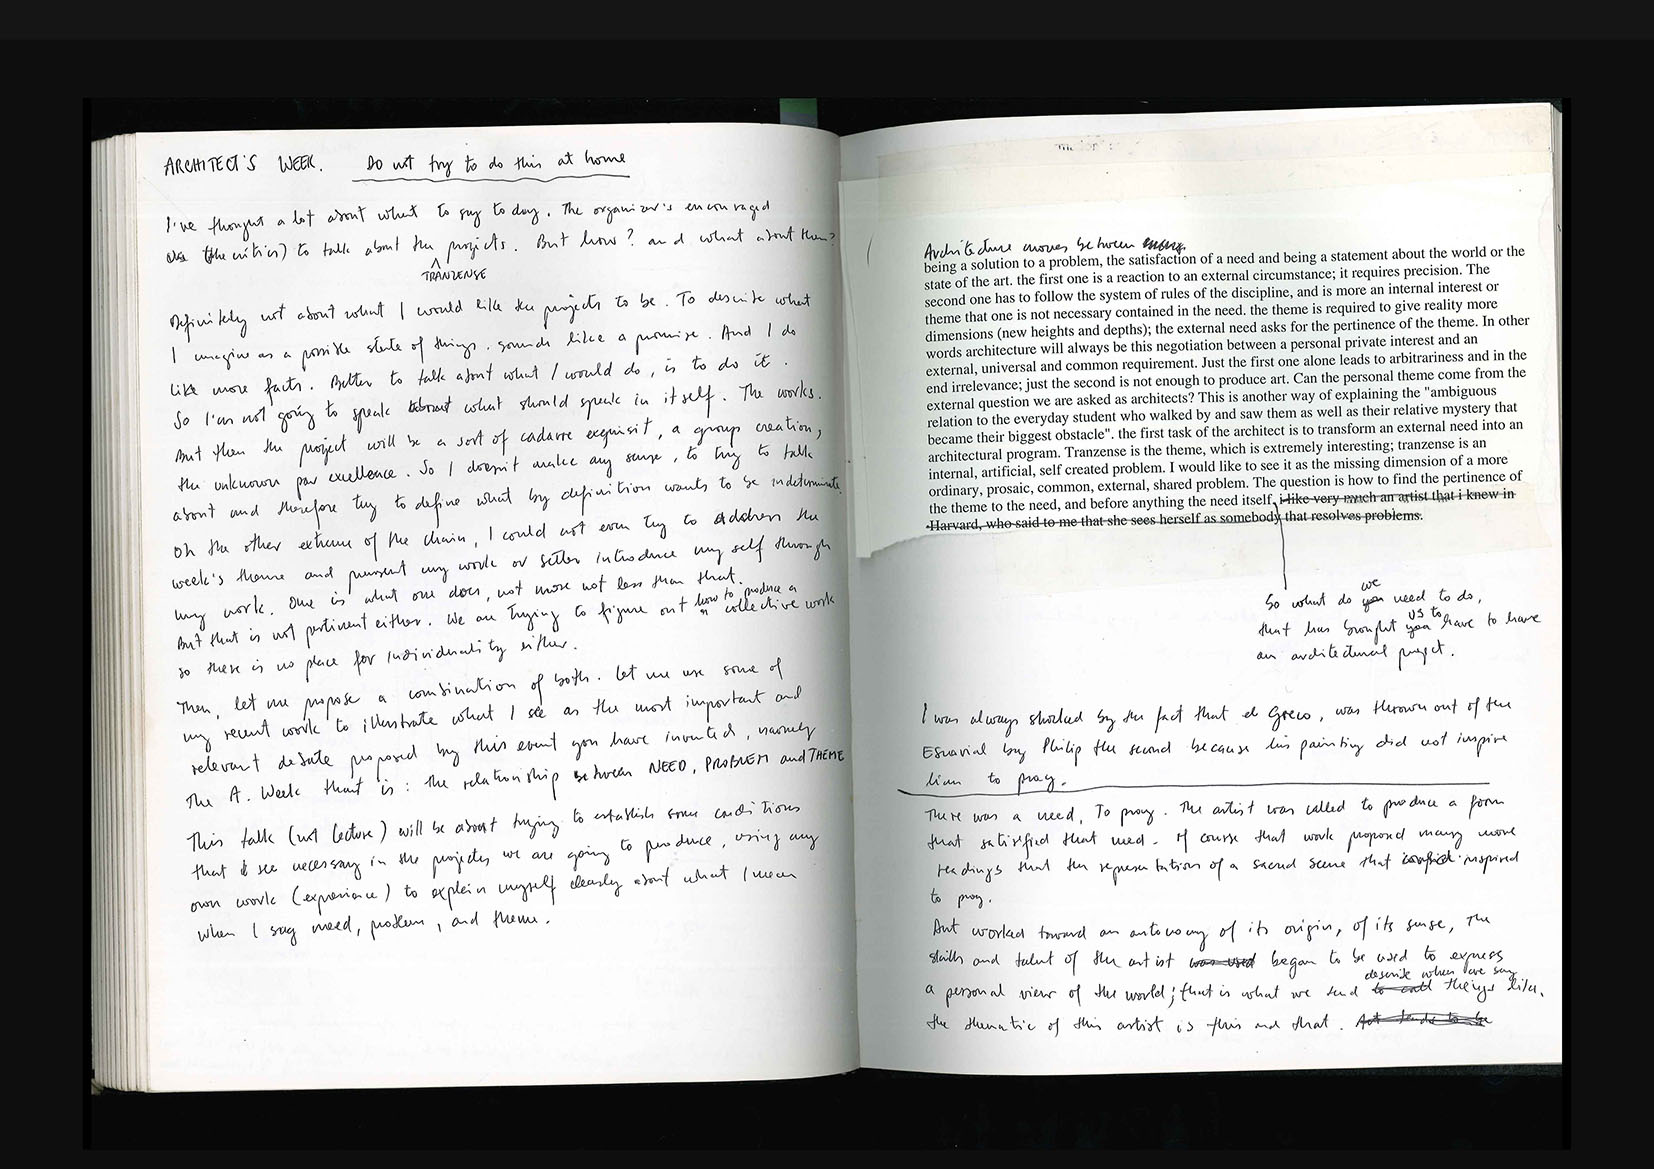 ARCHITECT'S WEEK. Do not try to do this at home
I've thought a lot about what to say to day. The organizer's encouraged
us (the critics) to talk about the projects. But how? and what about them?
TRANZENSE
Definitely not about what I would like the projects to be. To describe what
I imagine as a possible state of things. sounds like a promise. And I do
like more facts. Better to talk about what I would do, is to do it.
So I'm not going to speak about what should speak in itself. The works.
But then the project will be a sort of cadavre exquisit, a group creation,
the unknown par excellence. So I doesn't make any sense, to try to talk
about and therefore try to define what by definition wants to be indeterminate.
On the other extreme of the chain, I could not even try to address the
week's theme and present my work or better introduce my self through
my work. One is what one does, not more not less than that.
But that is not pertinent either. We are trying to figure out how to produce a collective work
so there is no place for individuality either.
Then, let me propose a combination of both. Let me use some of
my recent work to illustrate what I see as the most important and
relevant debate proposed by this event you have invented, namely
the A. Week that is: the relationship between NEED, PROBLEM and THEME
This talk (not lecture) will be about trying to establish some conditions
that I see necessary in the projects we are going to produce, using my
own work (experience) to explain myself clearly about what I mean
when I say need, problem, and theme.
Architecture moves between
being a solution to a problem, the satisfaction of a need and being a statement about the world or the
state of the art. the first one is a reaction to an external circumstance; it requires precision. The
second one has to follow the system of rules of the discipline, and is more an internal interest or
theme that one is not necessary contained in the need. the theme is required to give reality more
dimensions (new heights and depths); the external need asks for the pertinence of the theme. In other
words architecture will always be this negotiation between a personal private interest and an
external, universal and common requirement. Just the first one alone leads to arbitrariness and in the
end irrelevance; just the second is not enough to produce art. Can the personal theme come from the
external question we are asked as architects? This is another way of explaining the "ambiguous
relation to the everyday student who walked by and saw them as well as their relative mystery that
became their biggest obstacle". the first task of the architect is to transform an external need into an
architectural program. Tranzense is the theme, which is extremely interesting; tranzense is an
internal, artificial, self created problem. I would like to see it as the missing dimension of a more
ordinary, prosaic, common, external, shared problem. The question is how to find the pertinence of
the theme to the need, and before anything the need itself, i like very much an artist that i knew in
Harvard, who said to me that she sees herself as somebody that resolves problems.
So what do you we need to do,
that has brought you us to have to have
an architectural project.
I was always shocked by the fact that el Greco, was thrown out of the
Escuarial by Philip the second because his painting did not inspire
him to pray.
There was a need, To pray. The artist was called to produce a form
that satisfied that need. Of course that work proposed many more
readings that the representation of a sacred scene that inspired
to pray.
Art worked toward an autonomy of its origin, of its sense, The
skills and talent of the artist was used began to be used to express
a personal view of the world; that is what we tend to call describe when we say things like,
the thematic of this artist is this and that. Art tends to be